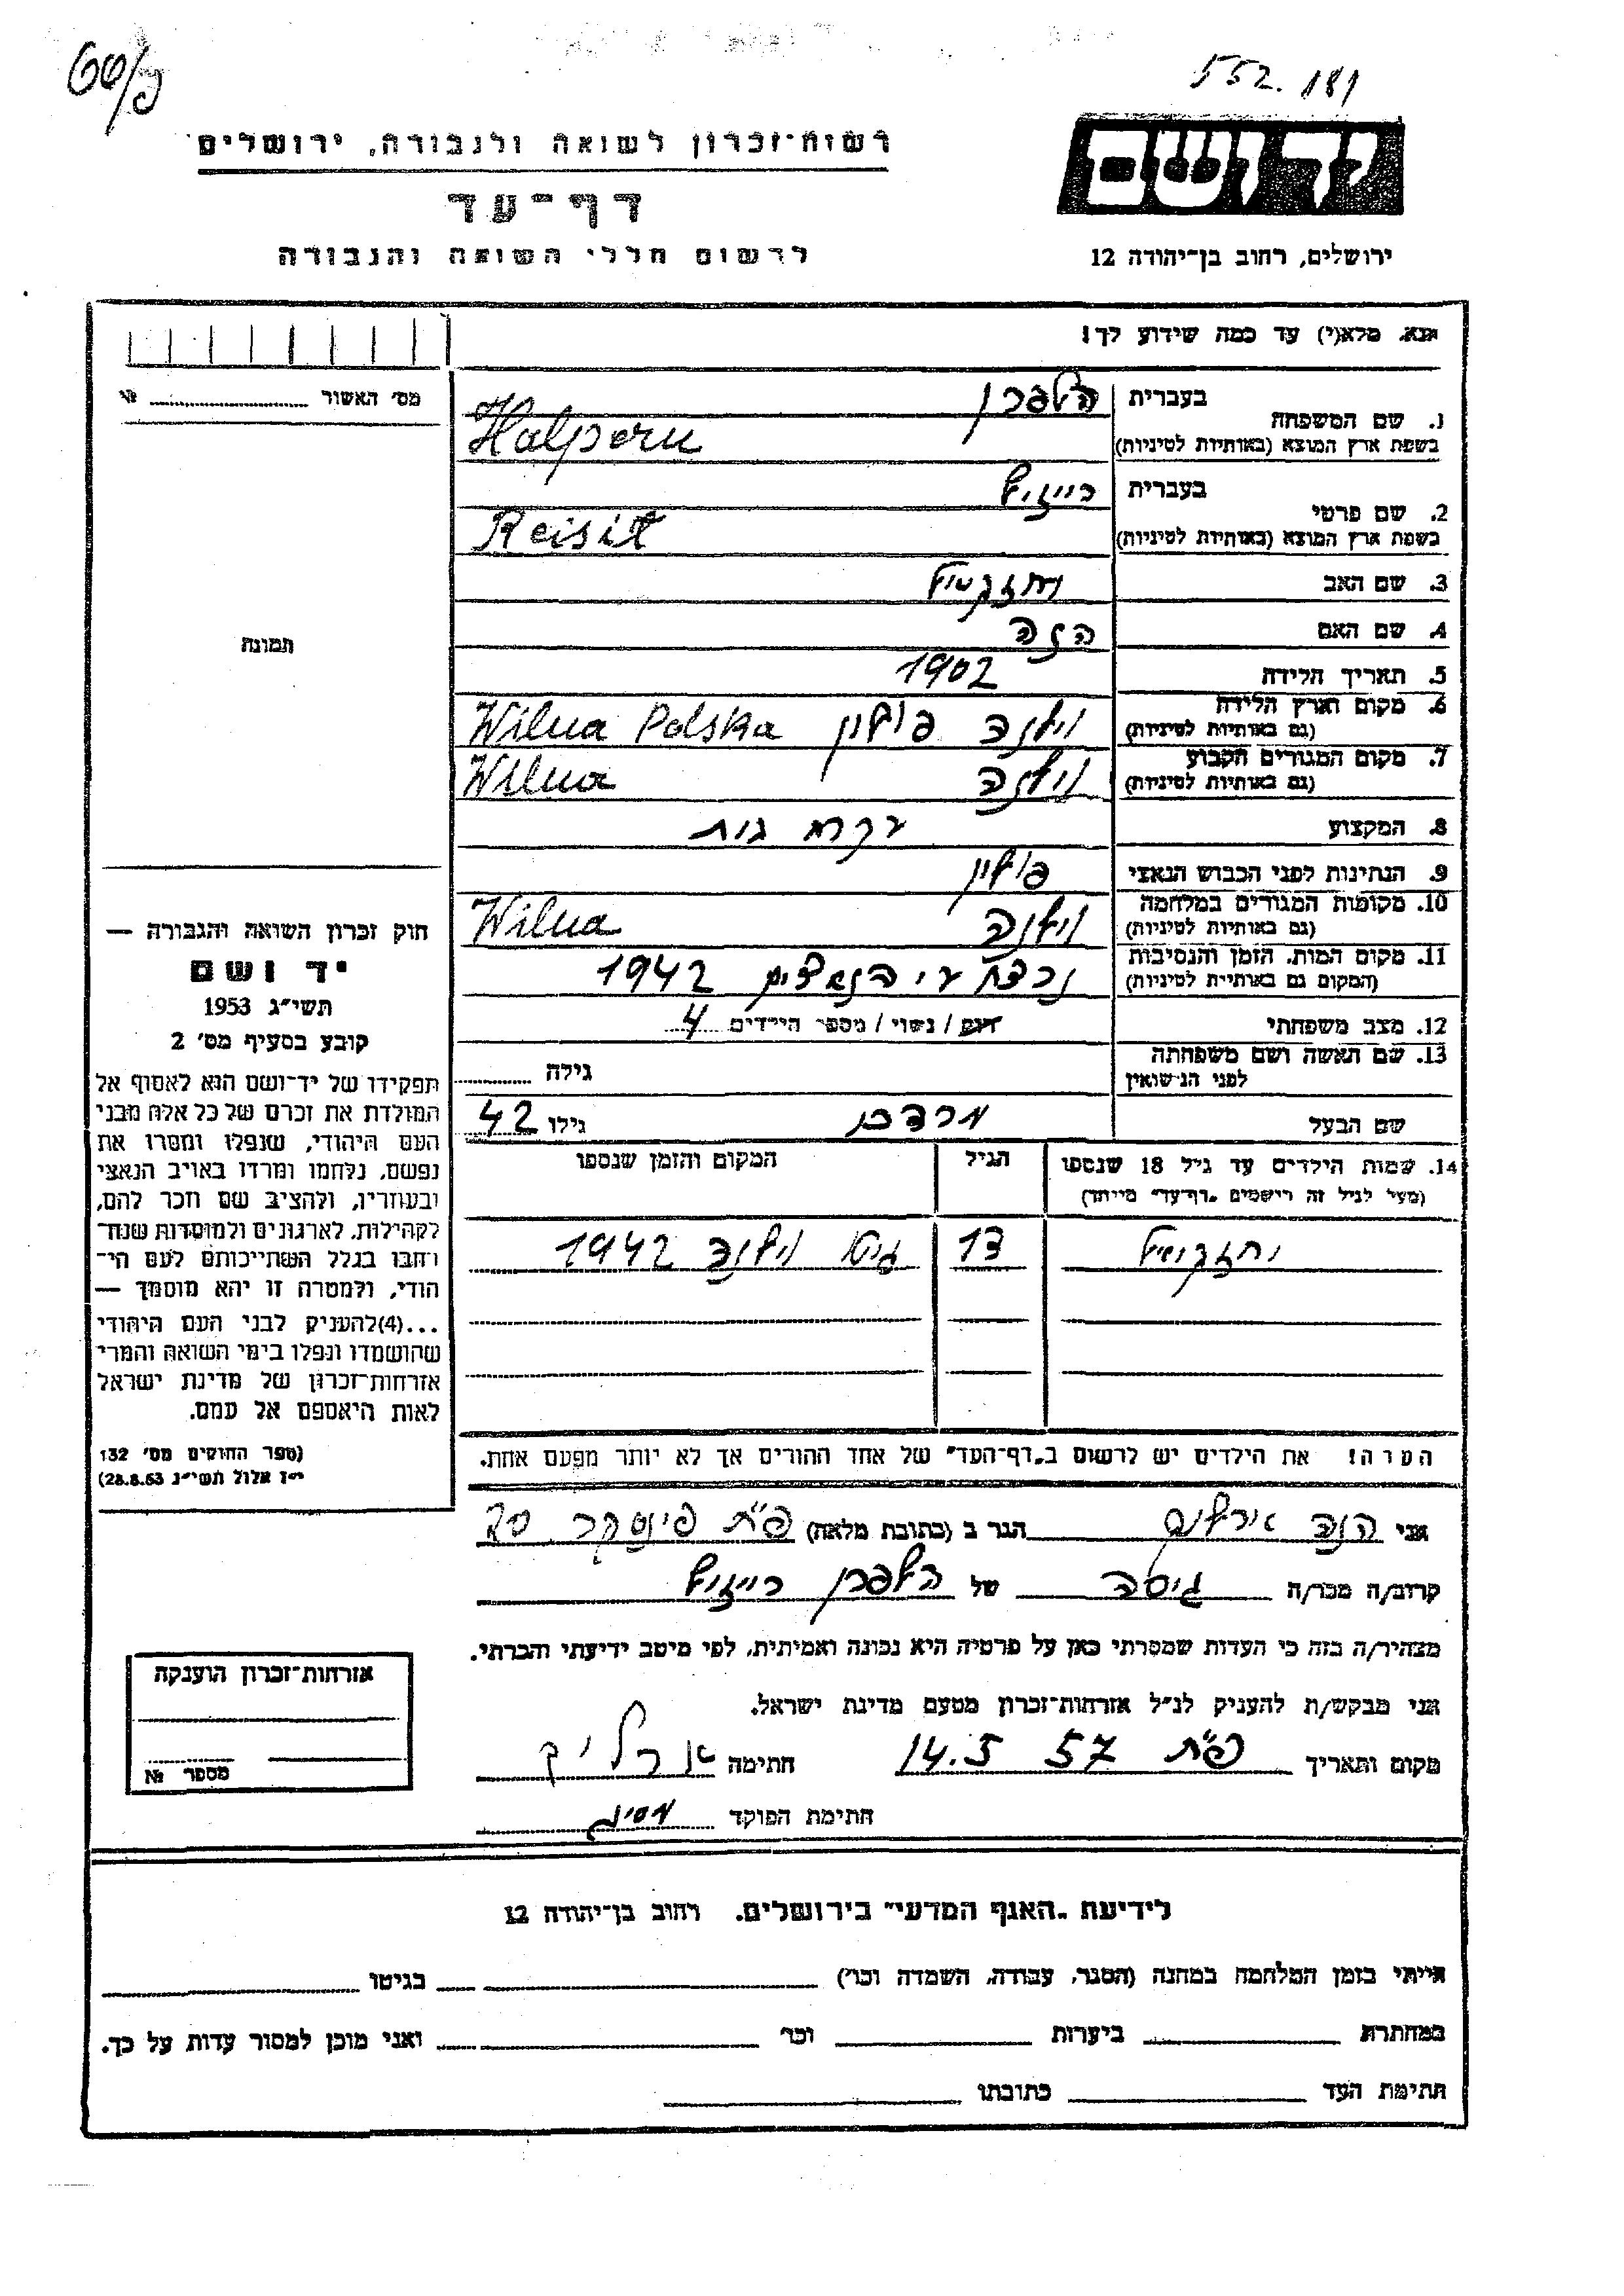 ס/פט
552.181
יד ושם
רשות־זכרון לשואה ולגבורה, ירושלים
דף־עד
לרשום חללי השואה והגבורה
ירושלים, רחוב בן־יהודה 12
נא. מלא(י) עד כמה שידוע לך!
מס׳ האשור № 
1. שם המשפחה
בעברית הלפרן
בשפת ארץ המוצא (באותיות לטיניות) Halpern
2. שם פרטי
בעברית רייזיל
בשפת ארץ המוצא (באותיות לטיניות) Reisil
3. שם האב יחזקאיל
4. שם האם
5. תאריך הלידה 1902
6. מקום וארץ הלידה וילנה פולין Wilna Polska
(גם באותיות לטיניות)
7. מקום המגורים הקבוע וילנה Wilna
(גם באותיות לטיניות)
8. המקצוע עקרת בית
9. הנתינות לפני הכבוש הנאצי פולין
10. מקומות המגורים במלחמה וילנה Wilna
(גם באותיות לטיניות)
11. מקום המות, הזמן והנסיבות נרצח ע״י הנאצים 1942
(המקום גם באותיות לטיניות)
12. מצב משפחתי רווק / נשוי / מספר הילדים 4
13. שם האשה ושם משפחתה
לפני הנישואין גילה
שם הבעל מרדכי גילו 42
14. שמות הילדים עד גיל 18 שנספו הגיל המקום והזמן שנספו
(מעל לגיל זה רישמים „דף־עד״ מיוחד)
יחזקאיל 13 גיטו וילנה 1942
הערה! את הילדים יש לרשום ב„דף־העד״ של אחד ההורים אך לא יותר מפעם אחת.
תמונה
חוק זכרון השואה והגבורה —
יד ושם
תשי״ג 1953
קובע בסעיף מס׳ 2
תפקידו של יד־ושם הוא לאסוף אל
המולדת את זכרם של כל אלה מבני
העם היהודי, שנפלו ומסרו את
נפשם, נלחמו ומרדו באויב הנאצי
ובעוזריו, ולהציב שם וזכר להם,
לקהילות, לארגונים ולמוסדות שנח־
רחבו בגלל השתייכותם לעם הי־
הודי, ולמטרה זו יהא מוסמך —
...(4)להעניק לבני העם היהודי
שהושמדו ונפלו בימי השואה והמרי
אזרחות־זכרון של מדינת ישראל
לאות היאספם אל עמם.
(ספר החוקים מס׳ 132
י״ז אלול תשי״ג 28.8.53)
אני אירליך הגר ב (כתובת מלאה) פ״ת פינסקר 20
קרוב/ה מכר/ה גיסה של הלפרן רייזיל
מצהיר/ה בזה כי העדות שמסרתי כאן על פרטיה היא נכונה ואמיתית, לפי מיטב ידיעתי והכרתי.
אני מבקש/ת להעניק לנ״ל אזרחות־זכרון מטעם מדינת ישראל.
מקום ותאריך פ״ת 14.5 57 חתימה ארליך
חתימת הפוקד
אזרחות־זכרון הוענקה
מספר №
לידיעת „האגף המדעי״ בירושלים. רחוב בן־יהודה 12
הייתי בזמן המלחמה במחנה (הסגר, עבודה, השמדה וכו׳) בגיטו
במחתרת ביערות וכו׳ ואני מוכן למסור עדות על כך.
חתימת העד כתובתו